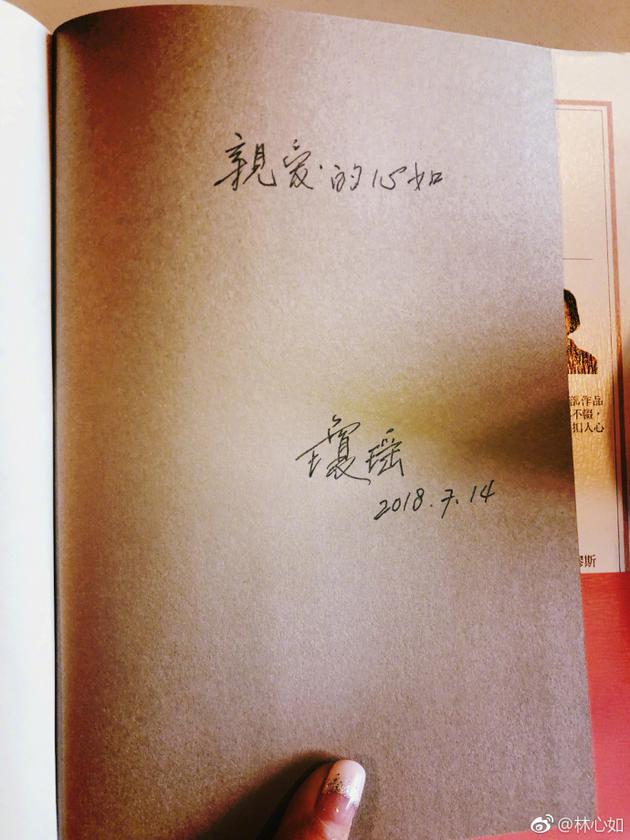 親愛的心如
瓊瑤
2018.7.14
部作品
不輟，
扣人心
穆斯
@林心如